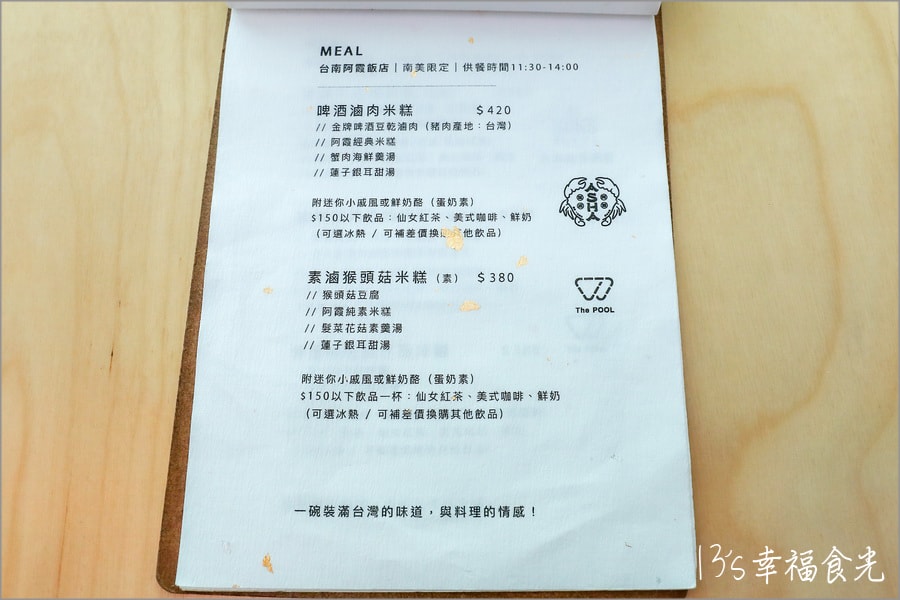 MEAL
台南阿霞飯店｜南美限定｜供餐時間11:30-14:00
啤酒滷肉米糕 $420
// 金牌啤酒豆乾滷肉（豬肉產地：台灣）
// 阿霞經典米糕
// 蟹肉海鮮羹湯
// 蓮子銀耳甜湯
附迷你小戚風或鮮奶酪（蛋奶素）
$150以下飲品：仙女紅茶、美式咖啡、鮮奶
（可選冰熱 / 可補差價換購其他飲品）
ASHA
素滷猴頭菇米糕（素） $380
// 猴頭菇豆腐
// 阿霞純素米糕
// 髮菜花菇素羹湯
// 蓮子銀耳甜湯
The POOL
附迷你小戚風或鮮奶酪（蛋奶素）
$150以下飲品一杯：仙女紅茶、美式咖啡、鮮奶
（可選冰熱 / 可補差價換購其他飲品）
一碗裝滿台灣的味道，與料理的情感！
13's幸福食光